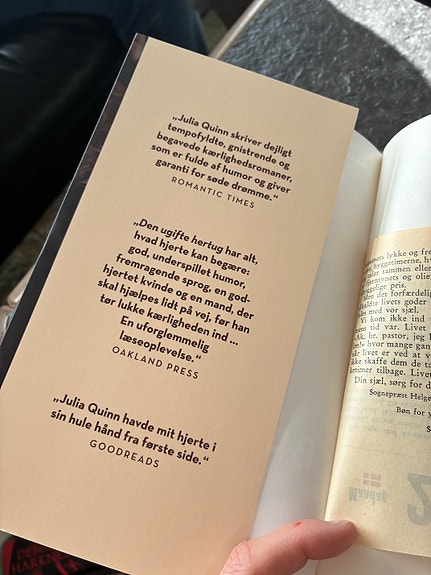 „Julia Quinn skriver dejligt
tempofyldte, gnistrende og
begavede kærlighedsromaner,
som er fulde af humor og giver
garanti for søde drømme.“
ROMANTIC TIMES
„Den ugifte hertug har alt,
hvad hjerte kan begære:
god, underspillet humor,
fremragende sprog, en god-
hjertet kvinde og en mand, der
skal hjælpes lidt på vej, før han
tør lukke kærligheden ind ...
En uforglemmelig
læseoplevelse.“
OAKLAND PRESS
„Julia Quinn havde mit hjerte i
sin hule hånd fra første side.“
GOODREADS
lykke og fr
hyggetimerne, h
sammen eller
og
pris.
det forfærdelig
livets goder
med vor sjæl.
Vi kom ikke ind
tid var. Livet
Ak, hr. pastor, jeg
hvor mange gan
livet er ved at v
ikke skaffe dem de ta
tilbage. Livet
Din sjæl, sørg for d
Sognepræst Helge
Bøn for y
S
Mandag
2